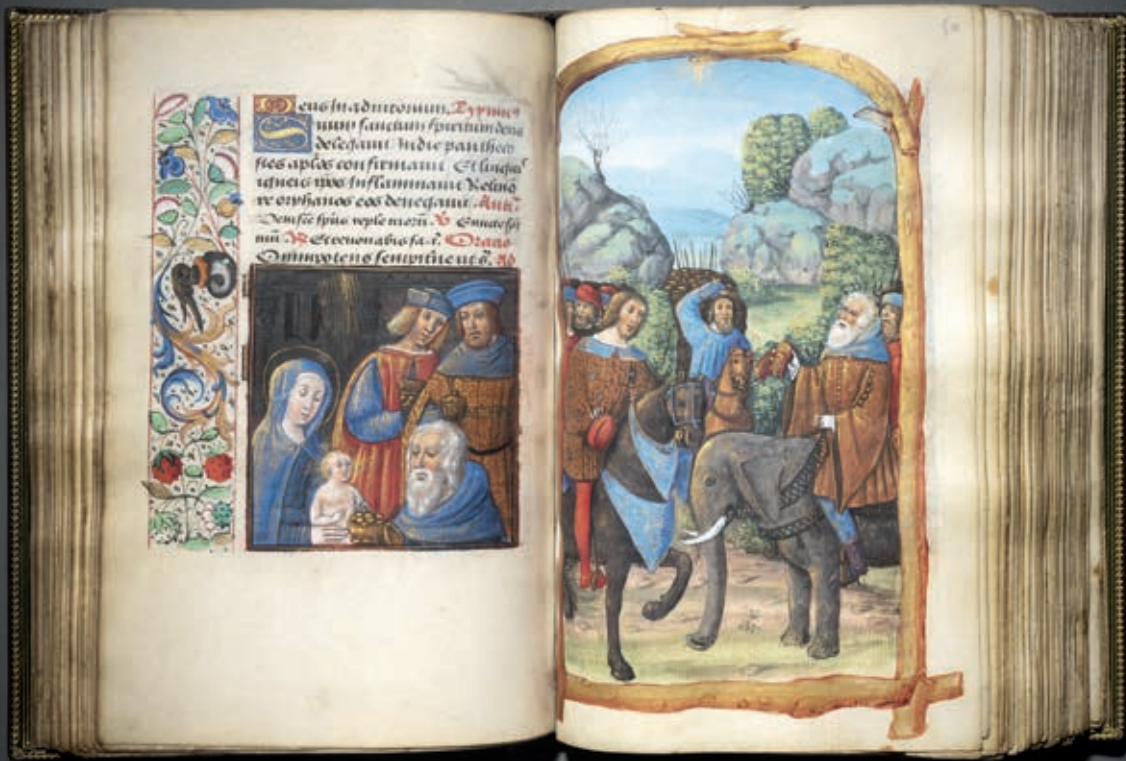 Deus in adiutorium. Typmus
Nunc sanctum spiritum deus
delegauit In die panthecos
stes aplos confirmauit Et linguis
igneis ipos Inflammauit Relinq
re orphanos eos denegauit. Ant.
Veni sce spus reple tuorū. V Emitte spi
tuū R Et renouabis fa. t. Oratio
Omnipotens sempiterne us. Ad